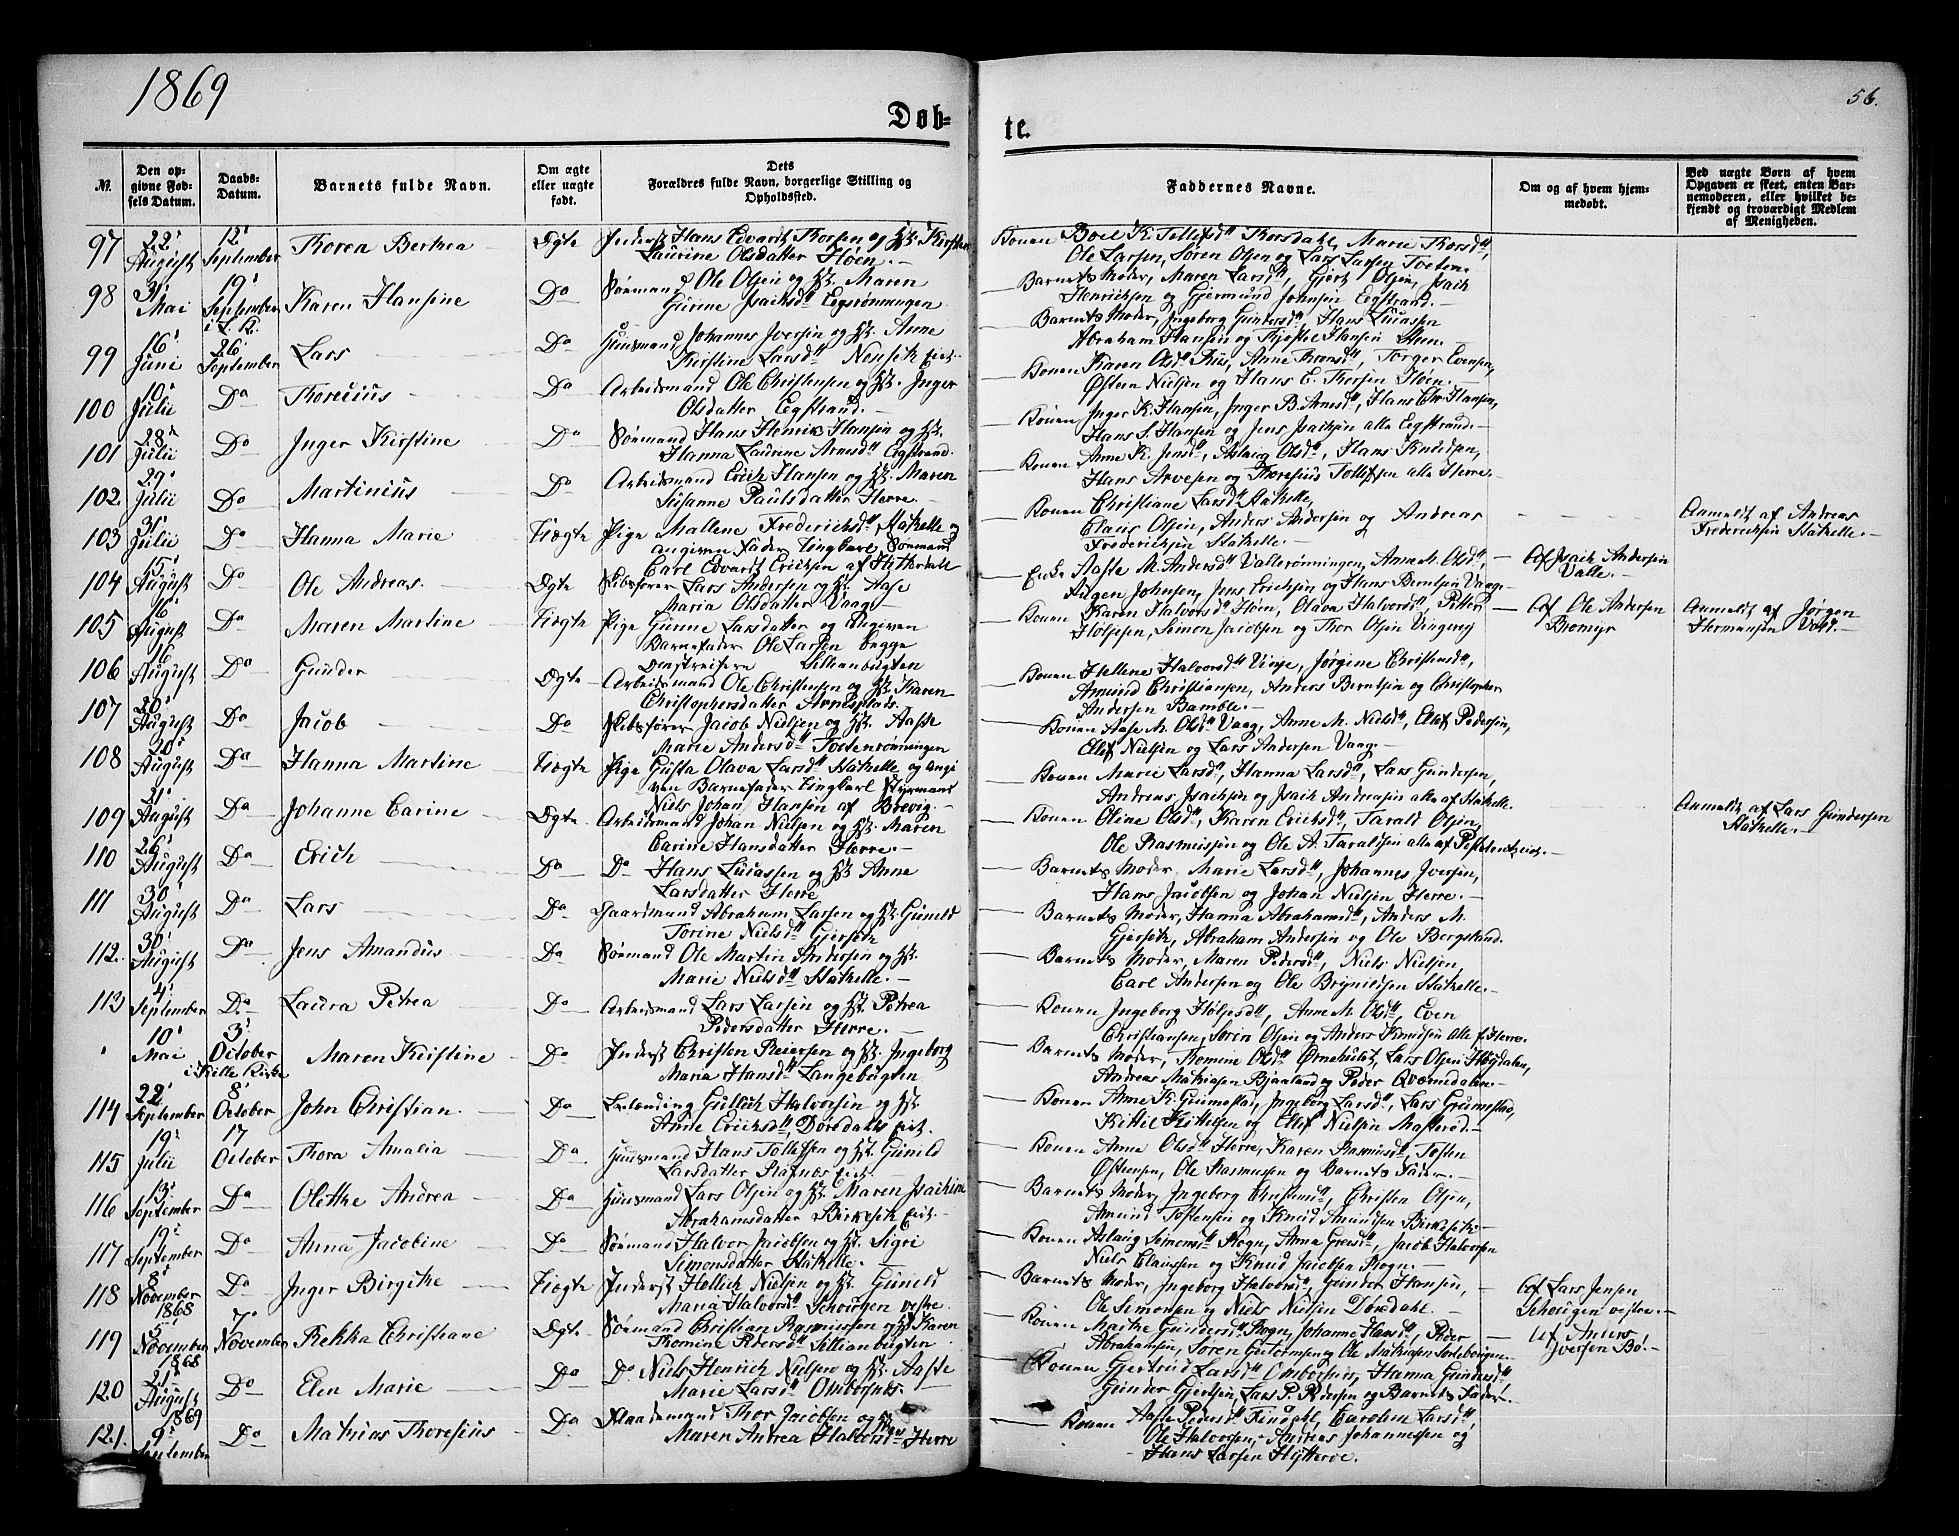 1869
56.
Døb-
te.
№.
Den op-
givne Fød-
sels Datum.
Daabs-
Datum.
Barnets fulde Navn.
Om ægte
eller uægte
født.
Dets
Forældres fulde Navn, borgerlige Stilling og
Opholdssted.
Faddernes Navne.
Om og af hvem hjem-
medøbt.
Ved uægte Børn af hvem
Opgaven er skeet, enten Bar-
nemoderen, eller hvilket be-
kjendt og troværdigt Medlem
af Menigheden.
97 22 August 12 September Thorea Berthea Ægte Inderst Hans Edvardt Thorsen og Hst. Kirsten
Laurine Olsdatter Høen.
Konen Boel K. Tollefsdtr Thorsdahl, Marie Thorsdtr,
Ole Larsen, Søren Olsen og Lars Larsen Tveten.
98 31 Mai 19 September i L.K. Karen Hansine Do Sømand Ole Olsen og Hst. Maren
Gunne Isaksdtr Eegsrønningen
Barnets Moder, Maren Larsdtr, Gjert Olsen, Isach
Henrichsen og Gjermund Johnsen Eegstrand.
99 16 Juni 26 September Lars Do Huusmand Johannes Iversen og Hst. Anne
Kirstine Larsdtr Nensæth eiet.
Barnets Moder, Ingeborg Gundersdtr, Hans Lucassen
Abraham Hansen og Kjøstel Hansen
100 10 Julii Do Thorecius Do Arbeidsmand Ole Christensen og Hst. Inger
Olsdatter Eegstrand.
Konen Karen Olsdtr Riis, Anne Thronsdtr, Torger Evensen,
Østen Nielsen og Hans E. Thorsen Høen.
101 28 Julii Do Inger Kirstine Do Sømand Hans Henrik Hansen og Hst.
Hanna Laurine Arnesdtr Eegstrand.
Konen Inger K. Hansen, Inger B. Arnesdtr, Hans Chr. Hansen,
Hans S. Hansen og Jens Isachsen alle Eegstrand.
102. 29 Julii Do Martinius Do Arbeidsmand Erich Hansen og Hst. Maren
Susanne Paulsdatter Herre.
Konen Anne K. Jensdtr, Aslaug Olsdtr, Hans Knudsen,
Hans Arvesen og Thoresius Tollefsen alle Herre.
103 31 Julii Do Hanna Marie Uægte Pige Mallene Frederichsdtr, Stathelle og
angiven Fader Ungkarl, Sømand
Carl Edvardt Erichsen af Hitterdal
Konen Christiane Larsdtr Stathelle,
Claus Olsen, Anders Andersen og Andreas
Frederichsen Stathelle.
Anmeldt af Andreas
Frederichsen Stathelle.
104 15 August Do Ole Andreas. Ægte Skibsfører Lars Andersen og Hst. Aase
Maria Olsdatter Vaag.
Enke Aaste M. Andersdtr Vallerønningen, Anne M. Olsdtr,
Jørgen Johnsen, Jens Erichsen og Hans Berntsen Vaag.
Af Isach Andersen
Valle.
105 16 August Do Maren Martine Uægte Pige Gunne Larsdatter og angiven
Barnefader Ole Larsen begge
Omstreifere Lillianbugten
Konen Karen Halvorsdtr Høen, Olava Halvorsdtr, Petter
Holjesen, Simon Jacobsen og Thor Olsen Vingerej
Af Ole Andersen
Bromyr
Anmeldt af Jørgen
Hermansen Vold.
106 16 August Do Gunder Ægte Arbeidsmand Ole Christensen og Hst. Karen
Christophersdatter Arnesplads.
Konen Hellene Halvorsdtr Vinje, Jørgine Christensdtr,
Amund Christiansen, Anders Berntsen og Christopher
Andersen Bamble.
107 20 August Do Jacob Do Skibsfører Jacob Nielsen og Hst. Aaste
Marie Andersdtr Tostenrønningen
Konen Aase M. Olsdtr Vaag, Anne M. Nielsdtr, Ellef Pedersen,
Ellef Nielsen og Lars Andersen Vaag.
108 20 August Do Hanna Martine Uægte Pige Gusta Olava Larsdtr Stathelle og angi
ven Barnefader Ungkarl Styrmand
Niels Johan Hansen af Brevig.
Konen Marie Larsdtr, Hanna Larsdtr, Lars Gundersen,
Andreas Isachsen og Isach Andreasen alle af Stathelle.
Anmeldt af Lars Gundersen
Stathelle.
109 21 August Do Johanne Carine Ægte Arbeidsmand Johan Nielsen og Hst. Maren
Carine Hansdatter Herre.
Konen Oline Olsdtr, Karen Erichsdtr, Tarald Olsen,
Ole Rasmussen og Ole A. Taraldsen alle af
110 26 August Do Erich Do Do Hans Lucassen og Hst. Anne
Larsdatter Herre
Barnets Moder, Marie Larsdtr, Johannes Iversen,
Hans Jacobsen og Johan Nielsen Herre.
111 30 August Do Lars Do Gaardmand Abraham Larsen og Hst. Gunild
Torine Nielsdtr Gjerseth
Barnets Moder, Hanna Abrahamsdtr, Anders M.
Gjerseth, Abraham Andersen og Ole Bergsland.
112. 30 August Do Jens Amandus Do Sømand Ole Martin Andersen og Hst.
Marie Nielsdtr Stathelle.
Barnets Moder, Maren Pedersdtr, Niels Nielsen,
Carl Andersen og Ole Brynildsen Stathelle.
113 4 September Do Laura Petrea Do Arbeidsmand Lars Larsen og Hst. Petrea
Pedersdatter Herre.
Konen Ingeborg Holjesdtr, Anne M. Olsdtr, Even
Christiansen, Søren Olsen og Anders Knudsen alle Herre.
10 Mai 3 October i Kille Kirke Maren Kirstine Do Inderst Christen Reiersen og Hst. Ingeborg
Maria Hansdtr Langebugten
Barnets Moder, Thomine Olsdtr Ørnehult, Lars Olsen Høgdalen,
Andreas Mathiasen Bjaaland og Peder Qværndalen.
114 22 September 8 October John Christian Do Selænding Gullich Halvorsen og Hst.
Anne Erichsdtr, Dørsdals eiet.
Konen Anne K. Grimestad, Ingeborg Larsdtr, Lars Grimestad,
Kittil Kittelsen og Ellef Nielsen Masterød.
115 19 Julii 17 October Thora Amalia Do Huusmand Hans Tollefsen og Hst. Gunild
Larsdatter Rafnæs eiet.
Konen Anne Olsdtr Herre, Karen Rasmusdtr, Tosten
Østensen, Ole Rasmussen og Barnets Fader.
116 13 September Do Olethe Andrea Do Huusmand Lars Olsen og Hst. Maren Isachine
Abrahamsdatter Birkeseth eiet.
Barnets Moder, Ingeborg Christensdtr, Christen Olsen,
Amund Tostensen og Knud Amundsen Birkeseth.
117 19 September Do Anna Jacobine Do Sømand Halvor Jacobsen og Hst. Sigri
Simonsdatter Stathelle.
Konen Aslaug Simonsdtr Rogn, Anna Greisdtr, Jacob Halvorsen
Niels Claussen og Knud Jacobsen Rogn.
118 8 November 1868 Do Inger Birgithe Uægte Inderst Hellich Nielsen og Hst. Gunild
Maria Halvorsdtr Schougen vestre.
Barnets Moder, Ingeborg Halvorsdtr, Gunder Hansen,
Ole Simonsen og Niels Nielsen Dørsdahl.
Af Lars Jensen
Schougen vestre.
119 5 November 1868 7 November Rekka Christiane Ægte Sømand Christian Rasmussen og Hst. Karen
Thomine Pedersdtr Lillianbugten
Konen Maithe Gundersdtr Rogn, Johanne Hansdtr, Peder
Abrahamsen, Søren Guttormsen og Ole Mathiasen
Af Anders
Iversen Bø.
120 21 August 1869 Do Elen Marie Do Do Niels Henrich Nielsen og Hst. Aaste
Marie Larsdtr Ombordsnes.
Konen Gjertrud Larsdtr Ombordsnes, Hanna Gundersdtr
Gunder Gjertsen, Lars P. Pedersen og Barnets Fader.
121. 9 September Do Mathias Thoresius Do Thor Jacobsen og Hst.
Maren Andrea Halvorsdtr Herre
Konen Aaste Pedersdtr Findahl, Caroline Larsdtr,
Ole Halvorsen, Andreas Johannessen og
Hans Larsen Hytterøe.